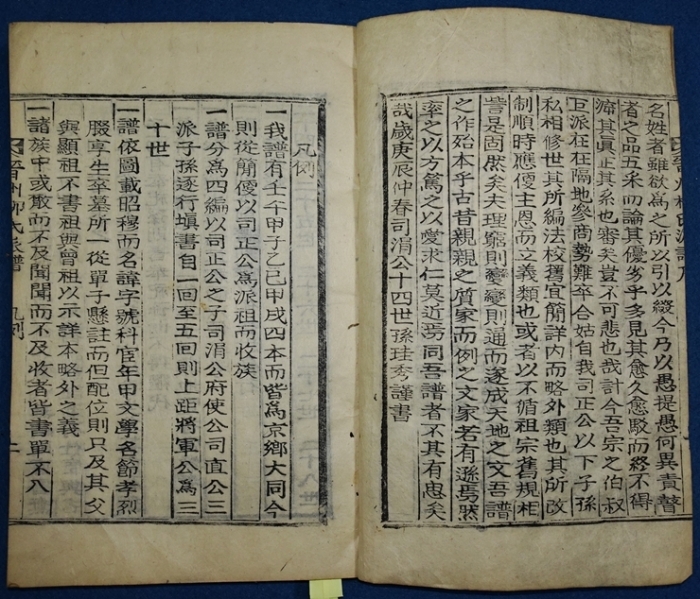 名姓者雖欲爲之所以引以綴今乃以愚提愚何異責瞽
者之品五采而論其優劣乎多見其愈久愈駁而終不得
濟其眞正其糸也審矣豈不可悲也哉計今吾宗之伯叔
巨派在在隔地參商勢難卒合姑自我司正公以下子孫
私相修世其所編法校獲宜簡詳內而略外類也其所改
制順時應便主恩而立義類也或者以不循祖宗舊規相
訾是固然矣夫理窮則變變則通而遂成天地之文吾譜
之作始本乎古昔親親之質家而例之文家若有遜焉然
率之以方篤之以愛求仁莫近焉同吾譜者不其有忠矣
哉歲庚辰仲春司涓公十四世孫珪秀謹書
凡例
一我譜有壬午甲子乙巳甲戌四本而皆爲京鄉大同今
則從簡優以司正公爲派祖而收族
一譜分爲四編以司正公之子司涓公府使公司直公三
派子孫逐行塡書自一回至五回則上距將軍公爲三
十世
一譜依圖載昭穆而名諱字號科宦年甲文學名節孝烈
壽享生卒墓所一從單子懸註而但配位則只及其父
與顯祖不書祖與曾祖以示詳本略外之義
一諸族中或散而不及聞聞而不及收者皆書單不入
晉州柳氏派譜 凡例 一